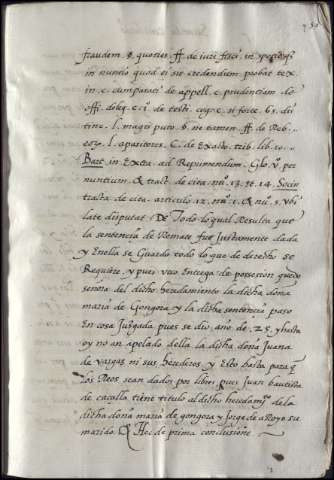 fraudem. §. quoties. ff. de iure fisci.
in nuntio quod ei sit credendum probat tex.
in c. cum parati. de appell. c. prudentiam de
offi. deleg. c. 1. de testi. cog. c. si forte. 65. dis
tinc. l. magis puto. §. ne tamen. ff. de Reb.
eorum. l. apparitores. C. de Exact. trib. lib. 10.
Bart. in Extra. ad Reprimendum. Glo. v. per
nuntium. & tract. de cita. nu. 13. et. 14. Socin
tracta. de cita. articulo. 12. nu. 1. & nu. 5. ubi
late disputat. De Todo lo qual Resulta que
la sentencia de Remate fue Justamente dada
y En ella se Guardo todo lo que de derecho se
Requiere. y pues uvo Entrega de possession quedo
señora del dicho heredamiento la dicha doña
maria de Gongora y la dicha sentencia paso
En cosa Juzgada pues se dio. ano de .25. y hasta
oy no an apelado della la dicha doña Juana
de vargas ni sus herederos y Esto basta para q
los Reos sean dados por libres pues Juan bautista
de caçalla tiene titulo al dicho heredami.º de la
dicha doña maria de gongora y Jorge de aRoyo su
marido. & Hoc de prima conclusione